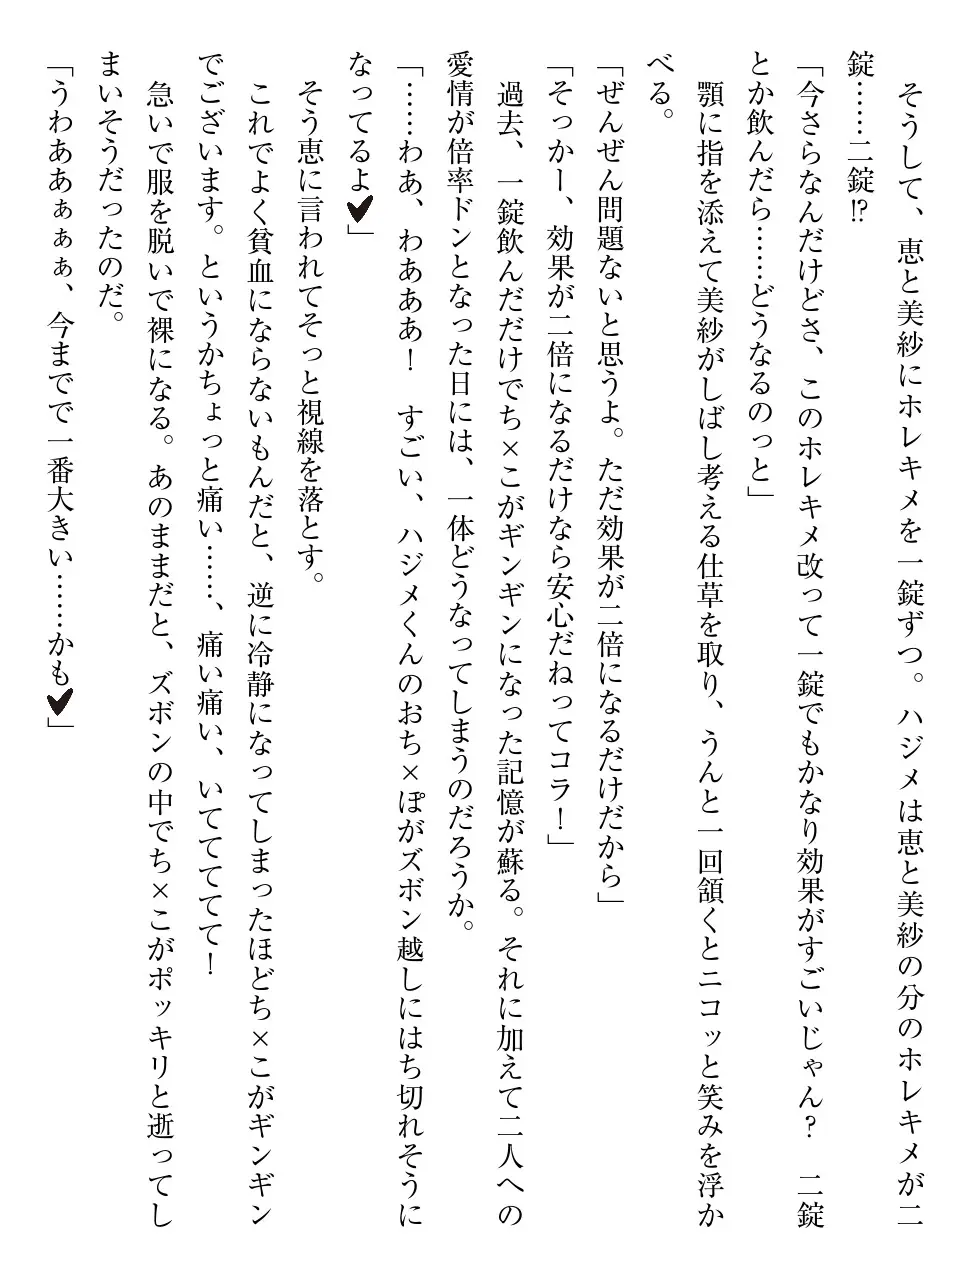 そうして、恵と美紗にホレキメを一錠ずつ。ハジメは恵と美紗の分のホレキメが二
錠……二錠!?
「今さらなんだけどさ、このホレキメ改って一錠でもかなり効果がすごいじゃん？　二錠
とか飲んだら……どうなるのっと」
顎に指を添えて美紗がしばし考える仕草を取り、うんと一回頷くとニコッと笑みを浮か
べる。
「ぜんぜん問題ないと思うよ。ただ効果が二倍になるだけだから」
「そっかー、効果が二倍になるだけなら安心だねってコラ！」
過去、一錠飲んだだけでち×こがギンギンになった記憶が蘇る。それに加えて二人への
愛情が倍率ドンとなった日には、一体どうなってしまうのだろうか。
「……わあ、わあああ！　すごい、ハジメくんのおち×ぽがズボン越しにはち切れそうに
なってるよ♥」
そう恵に言われてそっと視線を落とす。
これでよく貧血にならないもんだと、逆に冷静になってしまったほどち×こがギンギン
でございます。というかちょっと痛い……、痛い痛い、いててててて！
急いで服を脱いで裸になる。あのままだと、ズボンの中でち×こがポッキリと逝ってし
まいそうだったのだ。
「うわああぁぁぁ、今までで一番大きい……かも♥」